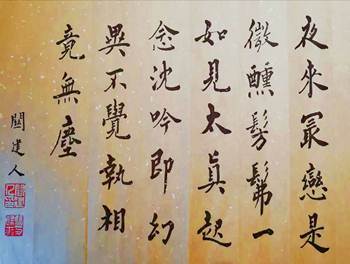 夜來冣戀是
微醺髣髴一
如見太眞起
念沈吟即幻
異不覺執相
竟無塵
建人